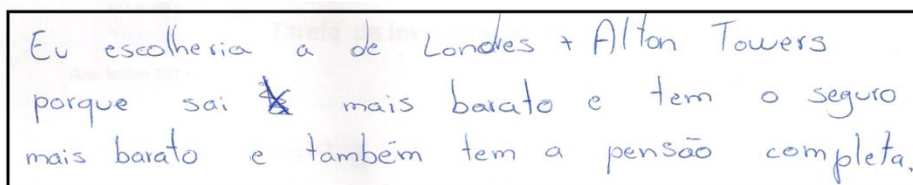 Eu escolheria a de Londres + Alton Towers
porque sai mais barato e tem o seguro
mais barato e também tem a pensão completa.